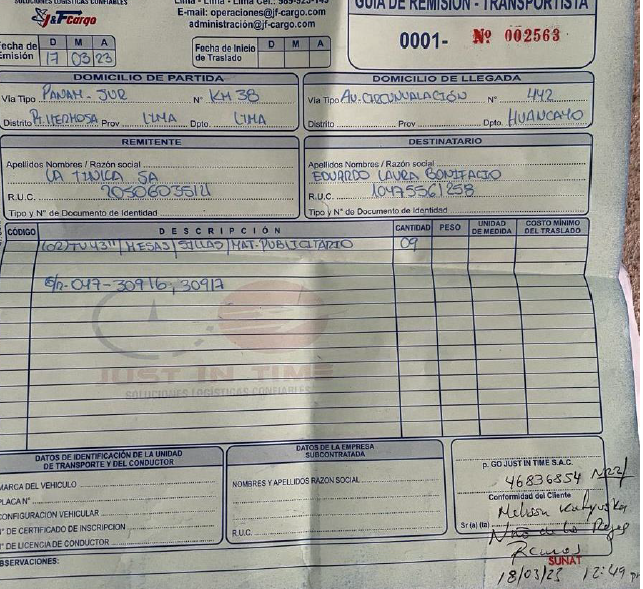 SOLUCIONES LOGÍSTICAS CONFIABLES
J&F Cargo
E-mail: operaciones@jf-cargo.com
administración@jf-cargo.com
GUÍA DE REMISIÓN - TRANSPORTISTA
0001- Nº 002563
Fecha de Emisión
D M A
17 03 23
Fecha de Inicio de Traslado
D M A
DOMICILIO DE PARTIDA
Vía Tipo PANAM. SUR Nº KM 38
Distrito P. HERMOSA Prov LIMA Dpto. LIMA
DOMICILIO DE LLEGADA
Vía Tipo AV. CIRCUNVALACIÓN Nº 442
Distrito Prov Dpto. HUANCAYO
REMITENTE
Apellidos Nombres / Razón social
LA TINKA SA
R.U.C.
Tipo y Nº de Documento de Identidad
DESTINATARIO
Apellidos Nombres / Razón social
EDUARDO LAURA BONIFACIO
R.U.C. 10475561258
Tipo y Nº de Documento de Identidad
CÓDIGO DESCRIPCIÓN CANTIDAD PESO UNIDAD DE MEDIDA COSTO MÍNIMO DEL TRASLADO
(02) TV 43" / MESAS / SILLAS / MAT. PUBLICITARIO 09
G/R-047-30916, 30917
JUST IN TIME
SOLUCIONES LOGÍSTICAS CONFIABLES
DATOS DE IDENTIFICACIÓN DE LA UNIDAD DE TRANSPORTE Y DEL CONDUCTOR
MARCA DEL VEHÍCULO
PLACA Nº
CONFIGURACIÓN VEHICULAR
Nº DE CERTIFICADO DE INSCRIPCIÓN
Nº DE LICENCIA DE CONDUCTOR
DATOS DE LA EMPRESA SUBCONTRATADA
NOMBRES Y APELLIDOS RAZON SOCIAL
R.U.C.
p. GO JUST IN TIME S.A.C.
46836854
Conformidad del Cliente
Sr (a) (ta)
Ramos
SUNAT
18/03/23 12:49 pm
OBSERVACIONES: